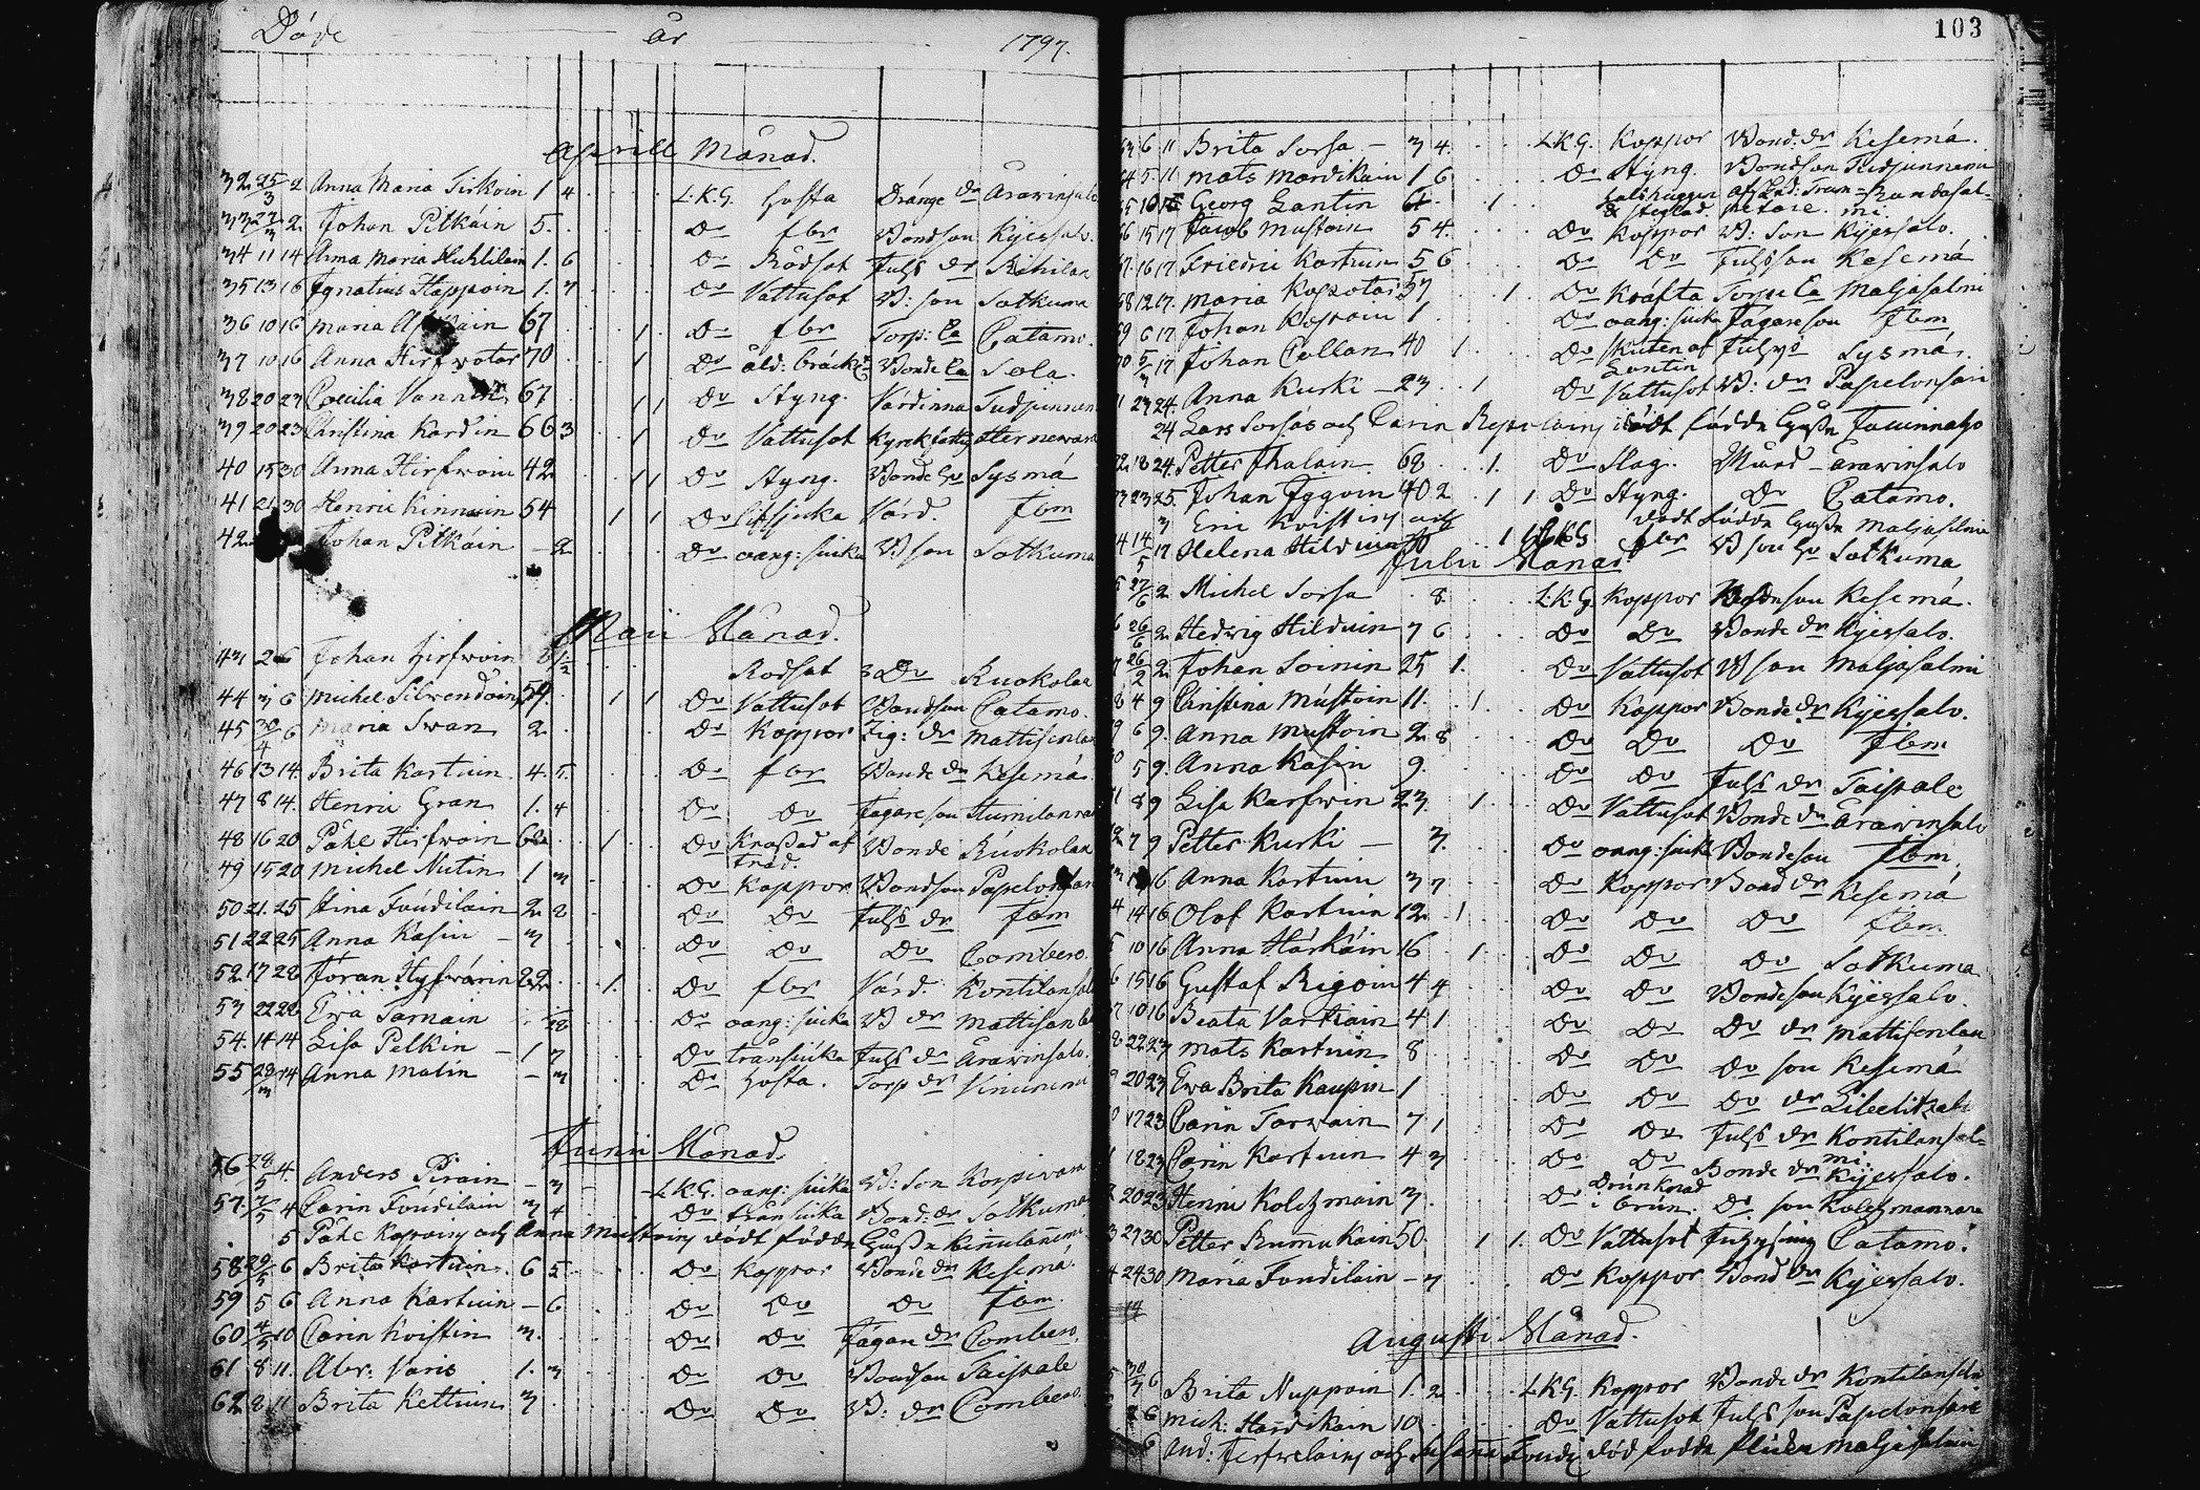 Döde år 1797.
Aprill Månad.
32 25/3 2 Anna Maria Tirkoin 1 4 L.K.G. Hosta Dränge dr Arawinsalo
33 27/3 2 Johan Pitkäin 5. Do fbr Bondson Kyessalo.
34 11 14 Anna Maria Huhtilain 1. 6 Do Rödsot Juhs dr Rihilax
35 13 16 Ignatius Happoin 1. 7 Do Vattusot B: son Sotkuma
36 10 16 Maria 67 1. Do fbr Torp: Ea Catamo.
37 10 16 Anna Hirfwotar 70 1 Do åld: bräckt Bonde Ea Sola.
38 20 23 Coecilia 67 1 1 Do Styng. Värdinna Tudjunnem
39 20 23 Christina Kardin 66 3 1 Do Vattusot Kyrk fattig
40 15 30 Anna Hirfwoin 42 1 1 Do Styng. Bonde Hu Sysmä
41 21 30 Henric Kinnuin 54 1 1 Do Värd. Ibm
42 Johan Pitkäin - 2 Do oang: siuka B son Sotkuma
Maii Månad.
43 2 6 Johan Hirfwoin 1/2 Rödsot Do Kuokolax
44 3 6 Michel Silwendoin 59. 1 1 Do Vattusot Bondson Catamo.
45 30/4 6 Maria Swan 2 Do Koppor Tig: dr Mattisenlax
46 13 14. Brita Kartuin 4. 5. Do fbr Bonde dr Kesemä
47 8 14. Henric Gran 1. 4 Do Do Jägare son
48 16 20 Påhl Hirfwoin 62 1 Do Kroßad af träd. Bonde Kuokolax
49 15 20 Michel Nutin 1 3 Do Koppor Bondson Papelonsari
50 21. 25 Stina Foudilain 2 8 Do Do Juhs dr Ibm
51 22 25 Anna Kasin - 3 Do Do Do Combero.
52 17 28 Jöran Hyfwärin 22 1. Do fbr Värd. Kontilansal
53 22 28 Ewa Tarnain /28 Do oang: siuka B dr Mattisanlax
54. 14 14 Lisa Pelkin - 1 7 Do tränsiuka Juhs dr Arawinsalo.
55 28/3 14 Anna Malin - 3 Do Hosta. Torp dr
Junii Månad.
56 28/5 4. Anders Pirain - 3 L.K.G. oang: siuka B: son Korpiwara
57. 2/5 4 Carin Foudilain 3 4 Do tränsiuka Bond: dr Sotkuma
5 Påhl Koppoins och Anna Mustoins dödt födde Gußn
58 29/5 6 Brita Kartuin. 6 5 Do Koppor Bonde dr Kesemä.
59 5 6 Anna Kartuin - 6 Do Do Do Ibm.
60 4/5 10 Carin Kvistin 3. Do Do Jägan dr Combero.
61 8 11. Abr: Varis 1. 3 Do Do Bondson Taipale
62 8 11 Brita Kettuin 3 Do Do B: dr Combero
103
6 11 Brita Sorsa - 3 4. L.K.G. Koppor Bond: dr Kesemä.
5. 11 Mats Mandikain 1 6 Do Styng. Bondson Tudjunnemi
Georg Lantin 1 Halshuggen & steglad.
15 17 Jacob Mustoin 5 4. Do Koppor B: Son Kyessalo.
16 17 Friedric Kartuin 5 6 Do Do Juhsson Kesemä
12 17. Maria Kopotar 57 1. Do Kräfta Torp Ea Maljasalmi
6 17. Johan Koppoin 1 Do oang: siuka Jägareson Ibm
5/3 17 Johan Collan 40 1 Do Skuten af Lantin Sysmä.
23 24. Anna Kurki - 23 1 Do Vattusot B: dr Papelonsari
24 Lars Sorsas och Carin dödt födde Gußn
18 24. Petter Ihalain 68 1. Do Slag. Murd - Arawinsalo
23 25. Johan Iggoin 40 2 1 1 Do Styng. Do Catamo.
3 Eric Kvistins dödt födde Gußn Maljasalmi
14/5 17 Helena Hilduin L.K.G fbr B son Hu Sotkuma
Julii Månad.
27/6 2 Michel Sorsa 8. L.K.G. Koppor Bondeson Kesemä.
26/6 2 Hedwig Hilduin 7 6 Do Do Bonde dr Kyessalo.
26/2 2 Johan Soinin 25 1. Do Vattusot B son Maljasalmi
4 9 Christina Mustoin 11. 1 Do Koppor Bonde dr Kyessalo.
6 9. Anna Mustoin 2 8 Do Do Do Ibm
5 9. Anna Kasin 9. Do Do Juhs dr Taipale
8 9 Lisa Karfwin 23. 1 Do Vattusot Bonde dr Arawinsalo
7 9 Petter Kurki - 3. Do oang: siuk Bondeson Ibm.
16 Anna Kartuin 3 7 Do Koppor Bond dr Kesemä
14 16 Olof Kartuin 12 1 Do Do Do Ibm
10 16 Anna Härkäin 16 1 Do Do Do Sotkuma
15 16 Gustaf Rigoin 4 4 Do Do Bondeson Kyessalo.
10 16 Beata Vartiain 4 1 Do Do Do dr Mattisenlax
22 23 Mats Kartuin 8 Do Do Do son Kesemä
20 23 Ewa Brita Kaupin 1 Do Do Do dr
17 23 Carin Torwain 7 1 Do Do Juhs dr Kontilansalmi
18 23 Carin Kartuin 4 3 Do Do Bonde dr Kyessalo.
20 23 Henric Koltzmain 3. Do Drunknad i brun. Do son Koltzmanwara
27 30 Petter Rummukain 50 1 1. Do Vattusot Catamo.
24 30 Maria Foudilain - 7 Do Koppor Bond dr Kyessalo.
Augusti Månad.
30/7 6 Brita Nuppoin 1. 2 L.K.G. Koppor Bonde dr Kontilansalm
6 Mich: Handikain 10 Do Vattusot Juhs son Papelonsari
6 And: och Susanna död födde flicka Maljasalmi